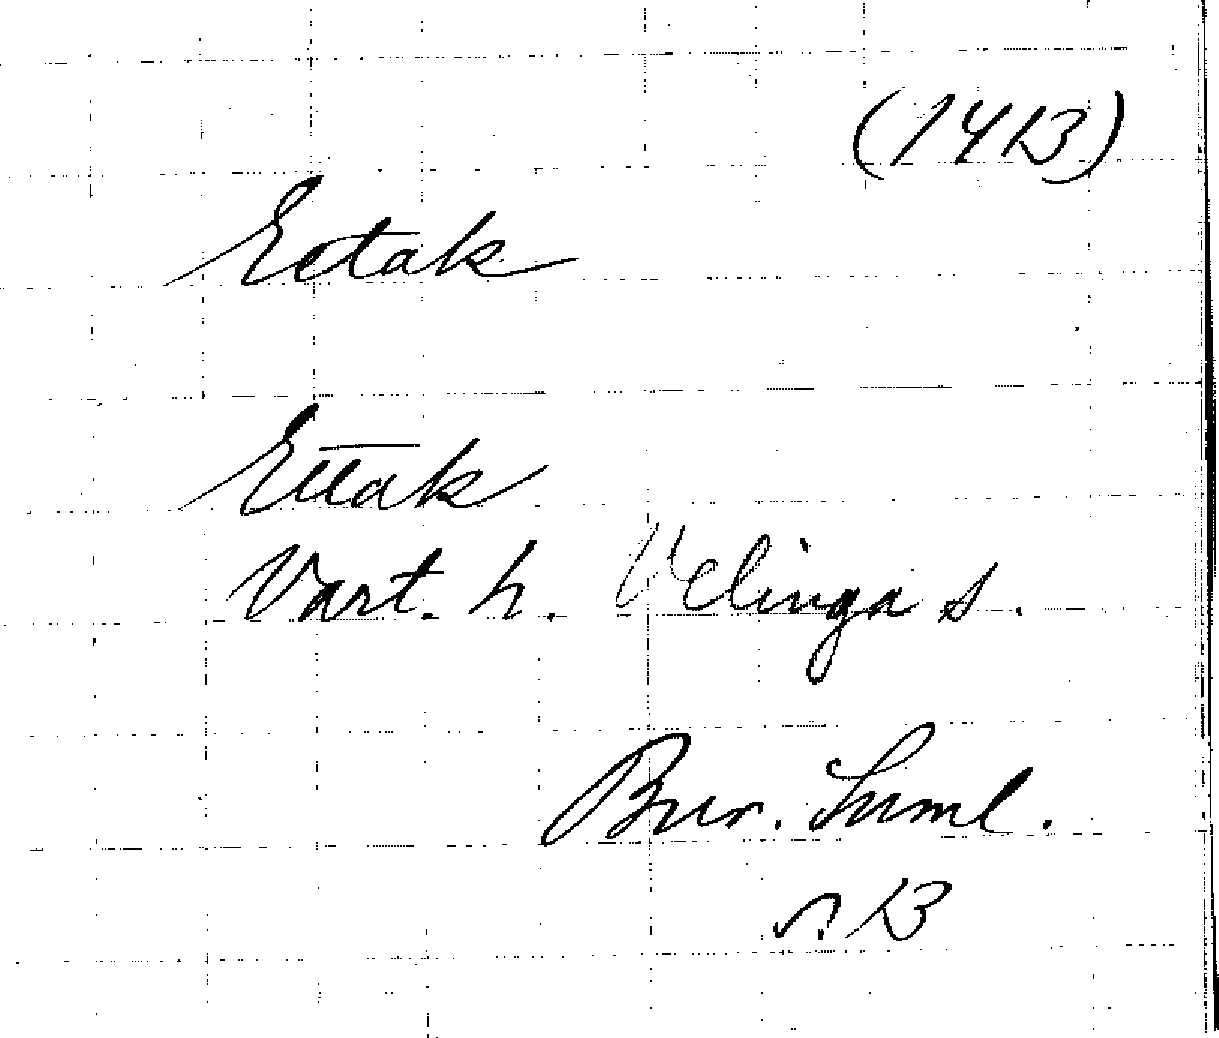 (1413)
Ectak
Ettak
Vart. h. Velinga s.
Bur. Suml.
s. 13